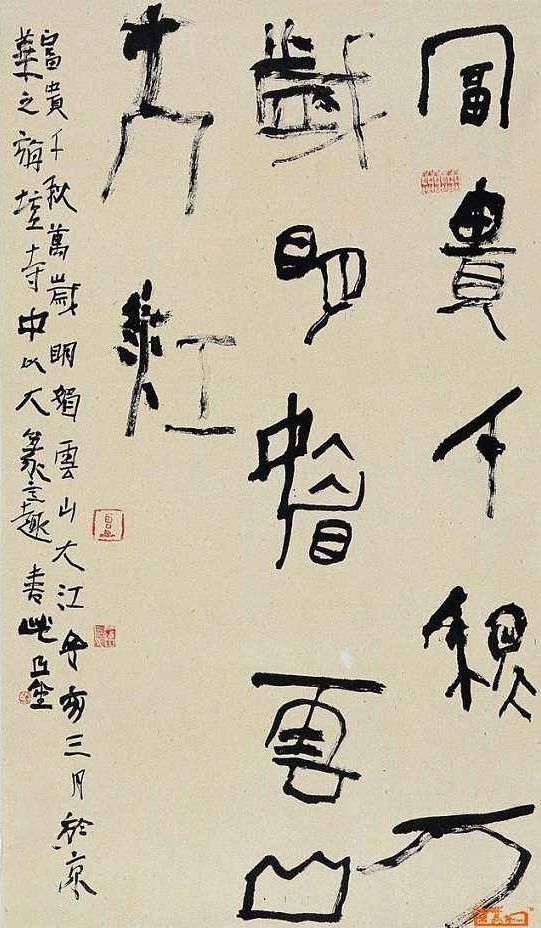 富貴千秋万
歲明媚雲山
大江
富貴千秋萬歲明媚雲山大江亥三月於京
華之寺中以大篆之趣書此